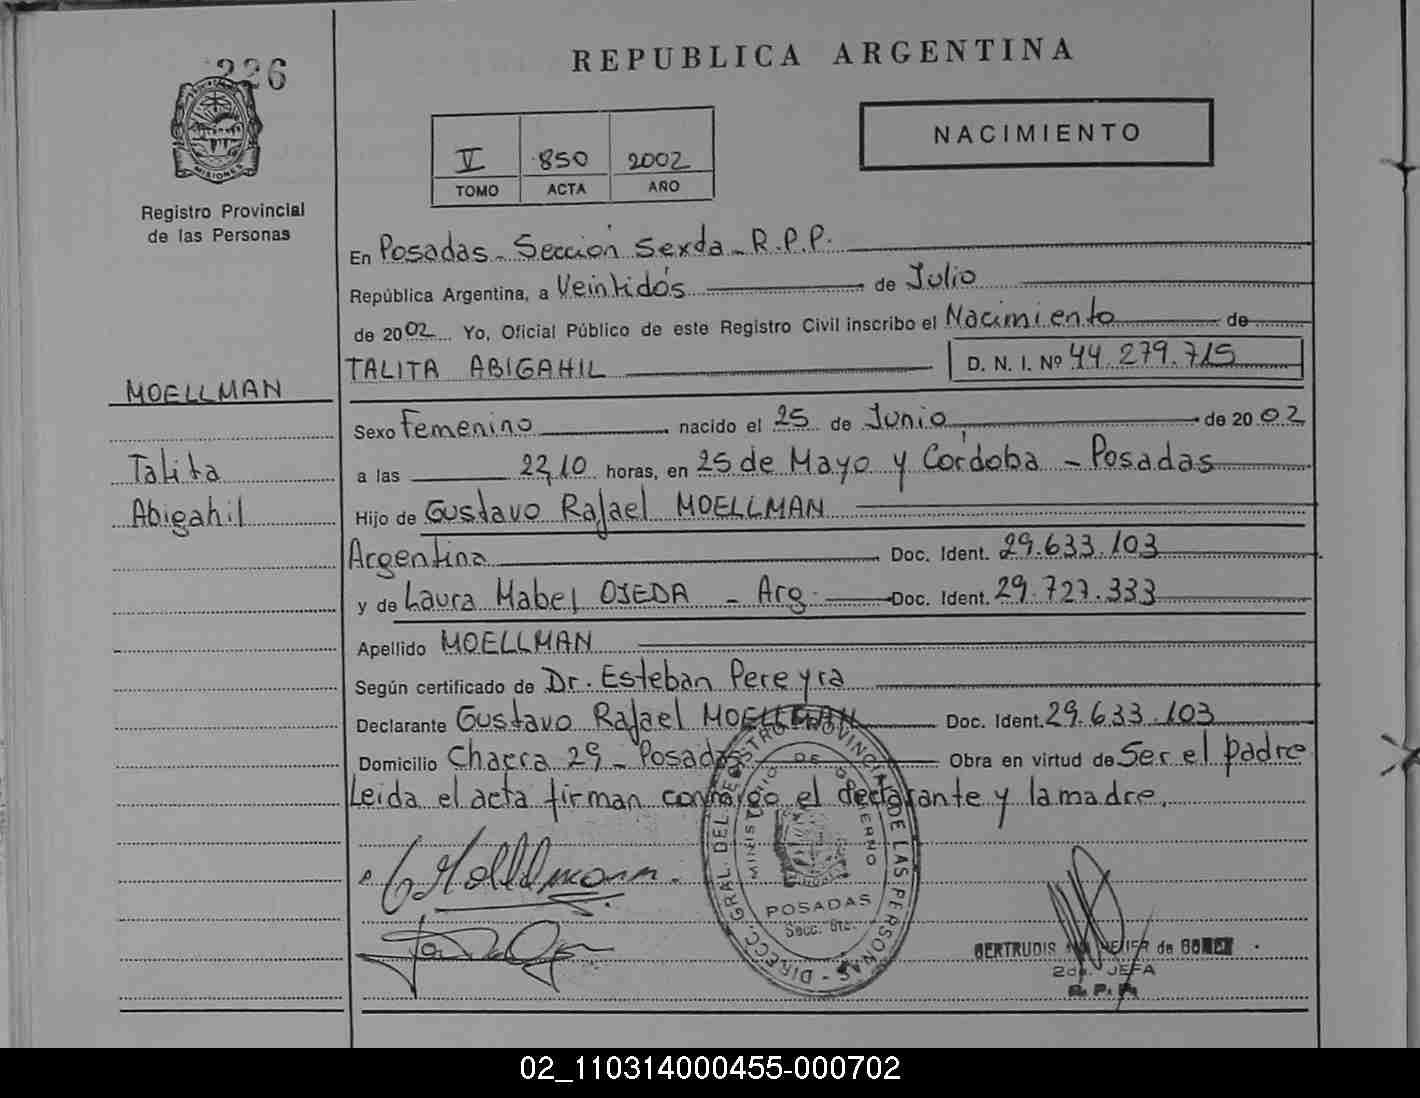 226
MISIONES
Registro Provincial
de las Personas
REPUBLICA ARGENTINA
V 850 2002
TOMO ACTA AÑO
NACIMIENTO
En Posadas - Sección Sexda - R.P.P.
República Argentina, a Veintidós de Julio
de 2002 Yo, Oficial Público de este Registro Civil inscribo el Nacimiento de
TALITA ABIGAHIL D. N. I. Nº 44.279.715
MOELLMAN
Talita
Abigahil
Sexo Femenino nacido el 25 de Junio de 2002
a las 22,10 horas, en 25 de Mayo y Córdoba - Posadas
Hijo de Gustavo Rafael MOELLMAN
Argentina Doc. Ident. 29.633.103
y de Laura Mabel OJEDA - Arg. Doc. Ident. 29.727.333
Apellido MOELLMAN
Según certificado de Dr. Esteban Pereyra
Declarante Gustavo Rafael MOELLMAN Doc. Ident. 29.633.103
Domicilio Chacra 29 - Posadas Obra en virtud de Ser el padre
Leida el acta firman conmigo el declarante y la madre.
G Mollmann.
DIRECC. GRAL. DEL REGISTRO PROVINCIAL DE LAS PERSONAS
MINISTERIO DE GOBIERNO
POSADAS
Secc. 6ta.
GERTRUDIS de GOMEZ
2da. JEFA
R. P. P.
02_110314000455-000702